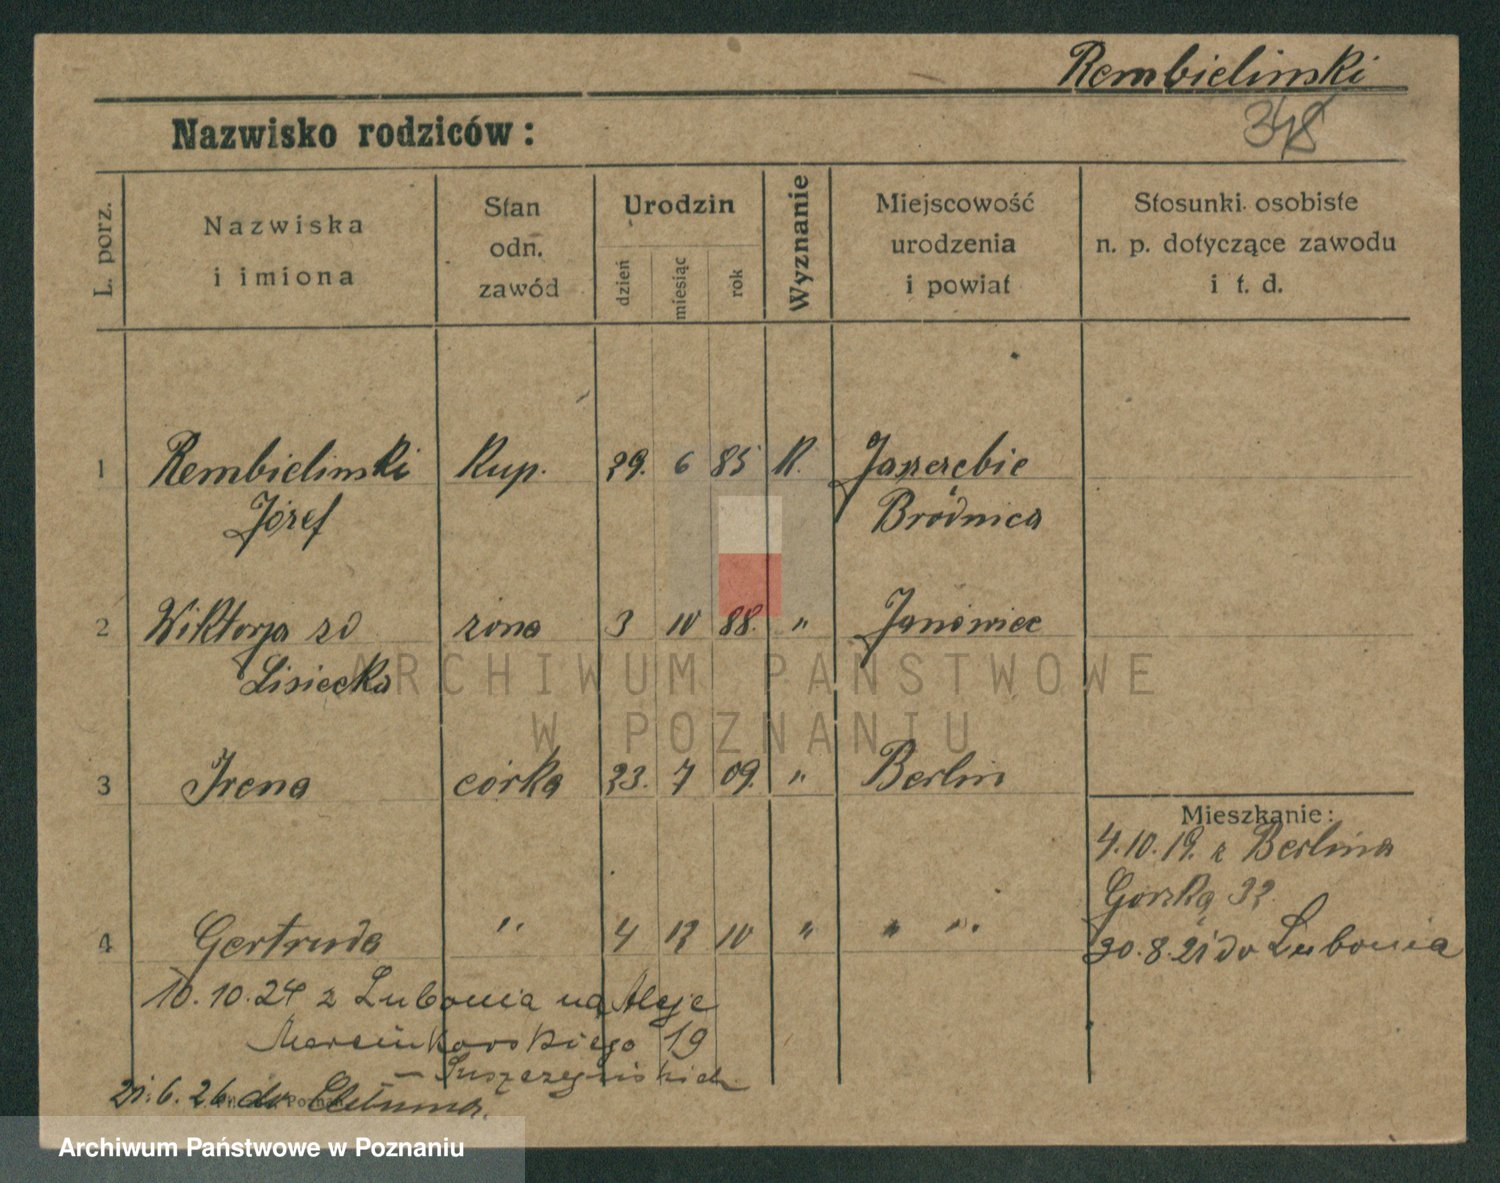 Rembielinski
348
Nazwisko rodziców:
L. porz.
Nazwiska i imiona
Stan odn. zawód
Urodzin
dzień miesiąc rok
Wyznanie
Miejscowość urodzenia i powiat
Stosunki osobiste n. p. dotyczące zawodu i t. d.
1 Rembielinski Kup. 29. 6 85 K. Jastrzebie
Józef Brodnica
2 Wiktorja zd żona 3 10 88. " Janowiec
Lisiecka
3 Irena córka 23. 7 09. " Berlin
Mieszkanie:
4.10.19. z Berlina
Gorską 32.
4 Gertruda " 4 12 10 " " "
30.8.21 do Lubonia
10.10.24 z Lubonia na Aleje
Marcinkowskiego 19
21.6.26 do
ARCHIWUM PAŃSTWOWE
W POZNANIU
Archiwum Państwowe w Poznaniu